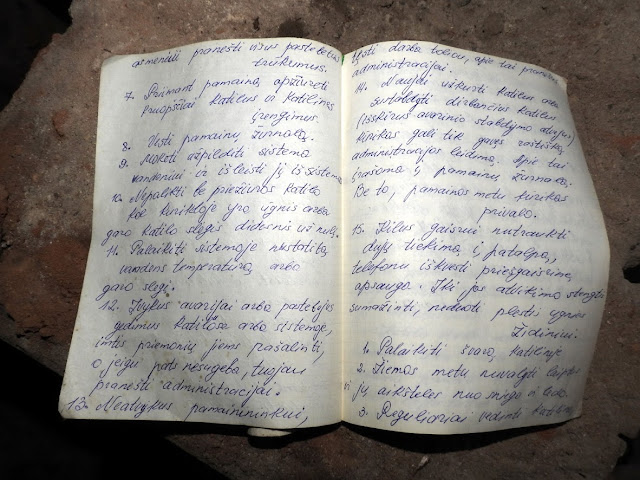 asmeniui pranešti visus pastebėtus
trūkumus.
7. Priimant pamainą apžiūrėti
kruopščiai katilus ir katilinės
įrengimus.
8. Vesti pamainų žurnalą.
9. Mokėti užpildyti sistemą
vandeniu ir išleisti jį iš sistemos
10. Nepalikti be priežiūros katilo
kol kūrykloje yra ugnis arba
garo katilo slėgis didesnis už nulį.
11. Palaikyti sistemoje nustatytą
vandens temperatūrą arba
garo slėgį.
12. Įvykus avarijai arba pastebėjus
gedimus katiluose arba sistemoje,
imtis priemonių jiems pašalinti,
o jeigu pats nesugeba, tuojau
pranešti administracijai.
13. Neatvykus pamainininkui,
tęsti darbą toliau, apie tai pranešus
administracijai.
14. Naujai užkurti katilus arba
sustabdyti dirbančius katilus
(išskyrus avarinio stabdymo atvejus)
kūrikas gali tik gavęs raštišką
administracijos leidimą. Apie tai
įrašoma į pamainų žurnalą.
Be to, pamainos metu kūrikas
privalo.
15. Kilus gaisrui nutraukti
dujų tiekimą į patalpą,
telefonu iškviesti priešgaisrinę
apsaugą. Iki jos atvykimo stengtis
sumažinti, neduoti plėstis ugnies
židiniui.
1. Palaikyti švarą katilinėje
2. Žiemos metu nuvalyti laiptus
ir jų aikšteles nuo sniego ir ledo.
3. Reguliariai vėdinti katilinę